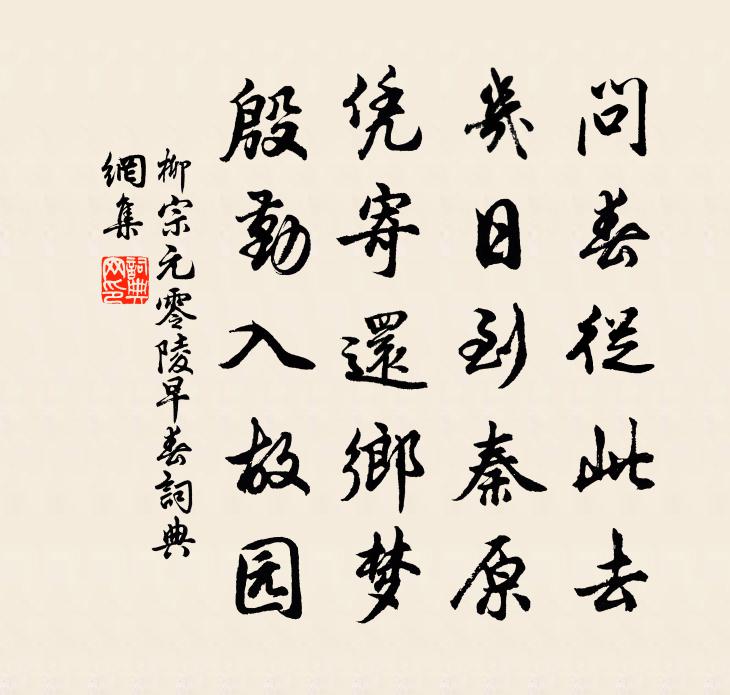 问春従此去
幾日到秦原
凭寄還鄉梦
殷勤入故园
柳宗元零陵早春詞典
網集
詞典
网印